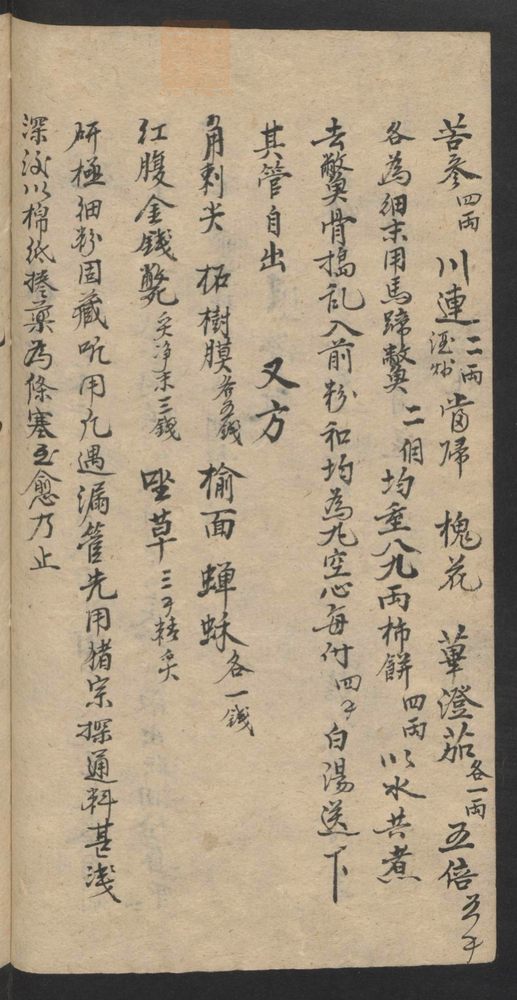 苦参四両 川連二両酒炒 當歸 槐花 蓽澄茄各一両 五倍五子
各為細末用馬蹄鱉二個均重八九両柿餅四両以水共煮
去鱉骨搗乱入前粉和均為丸空心每付四子白湯送下
其管自出 又方
角刺尖 柘樹膜各五錢 榆面 蝉蛻各一錢
紅腹金錢鱉炙净末三錢 草三子精炙
研極细粉固藏听用凡遇漏管先用猪宗探通料甚浅
深後以棉紙捲藥為條塞至愈乃止